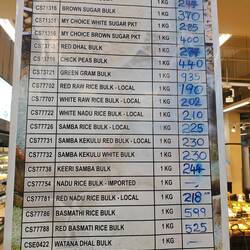 CS71316 BROWN SUGAR BULK 1 KG
CS71351 MY CHOICE WHITE SUGAR PKT 1 KG 370
MY CHOICE BROWN SUGAR PKT 1 KG 285
1 KG 400
RED DHAL BULK 1 KG
CHICK PEAS BULK 1 KG 440
CS73721 GREEN GRAM BULK 1 KG 935
CS77702 RED RAW RICE BULK - LOCAL 1 KG 190
CS77707 WHITE RAW RICE BULK - LOCAL 1 KG 202
CS77722 WHITE NADU RICE BULK - LOCAL 1 KG 210
CS77726 SAMBA RICE BULK - LOCAL 1 KG 225
CS77731 SAMBA KEKULU RED BULK 1 KG 230
CS77732 SAMBA KEKULU WHITE BULK 1 KG 230
CS77738 KEERI SAMBA BULK 1 KG
CS77754 NADU RICE BULK - IMPORTED 1 KG —
CS77781 RED NADU RICE BULK - LOCAL 1 KG 218
CS77786 BASMATHI RICE BULK 1 KG 599
CS77788 RED BASMATI RICE BULK 1 KG 525
CSE0422 WATANA DHAL BULK 1 KG —